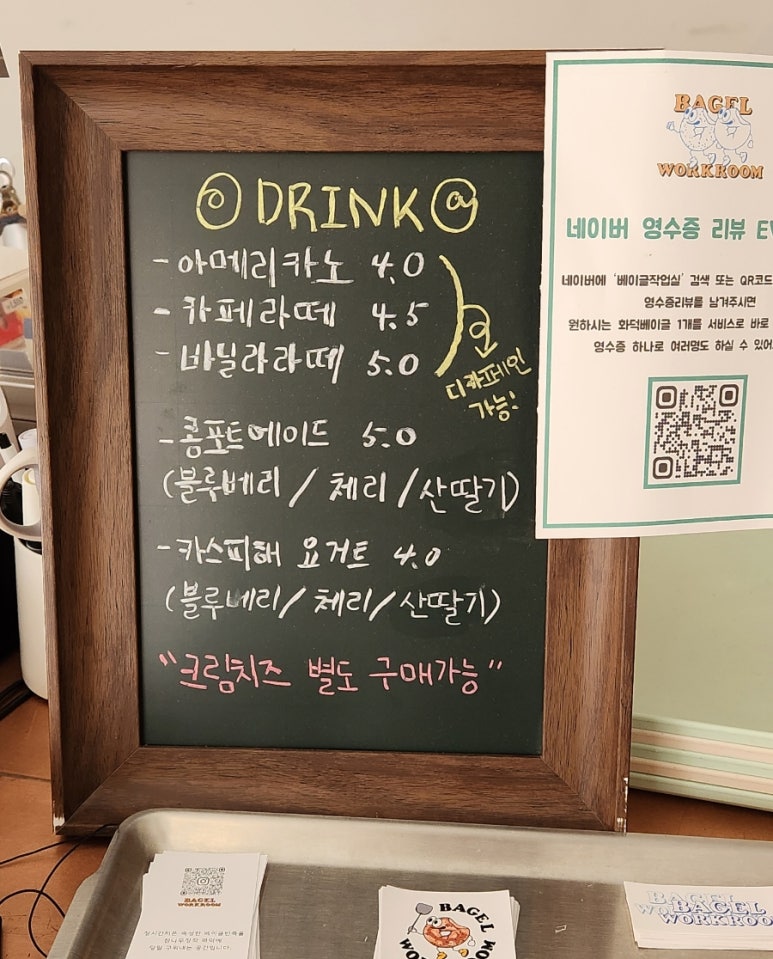 DRINK
- 아메리카노 4.0
- 카페라떼 4.5
- 바닐라라떼 5.0
디카페인
가능!
- 콤포트에이드 5.0
(블루베리 / 체리 / 산딸기)
- 카스피해 요거트 4.0
(블루베리 / 체리 / 산딸기)
"크림치즈 별도 구매가능"
BAGEL
WORKROOM
네이버 영수증 리뷰
네이버에 '베이글작업실' 검색 또는 QR코드
영수증리뷰를 남겨주시면
원하시는 화덕베이글 1개를 서비스로 바로
영수증 하나로 여러명도 하실 수 있어
BAGEL
WORKROOM
BAGEL
BAGEL
WORKROOM